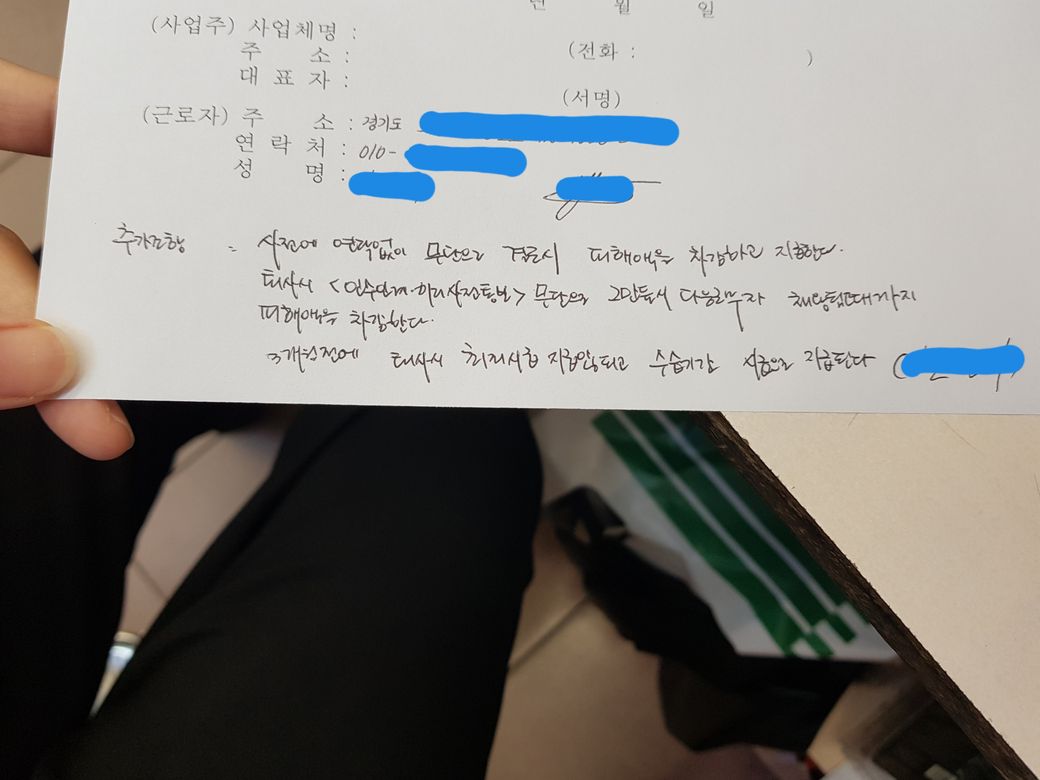 년 월 일
(사업주) 사업체명 :
주 소 : (전화 : )
대 표 자 :
(서명)
(근로자) 주 소 : 경기도
연 락 처 : 010-
성 명 :
추가조항 = 사전에 연락없이 무단으로 결근시 피해액을 차감하고 지급한다.
퇴사시 <인수인계·미리사전통보> 무단으로 그만둘시 다음근무자 채용될때까지
피해액을 차감한다.
3개월전에 퇴사시 최저시급 지급안되고 수습기간 시급으로 지급된다 (